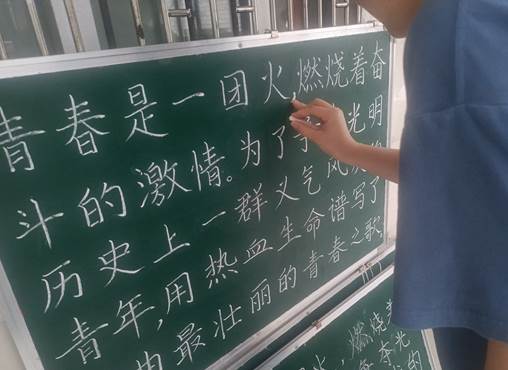 青春是一团火,燃烧着奋
斗的激情。为了光明
历史上一群义气风
青年,用热血生命谱写了
曲最壮丽的青春之歌.
火,燃烧
光
的